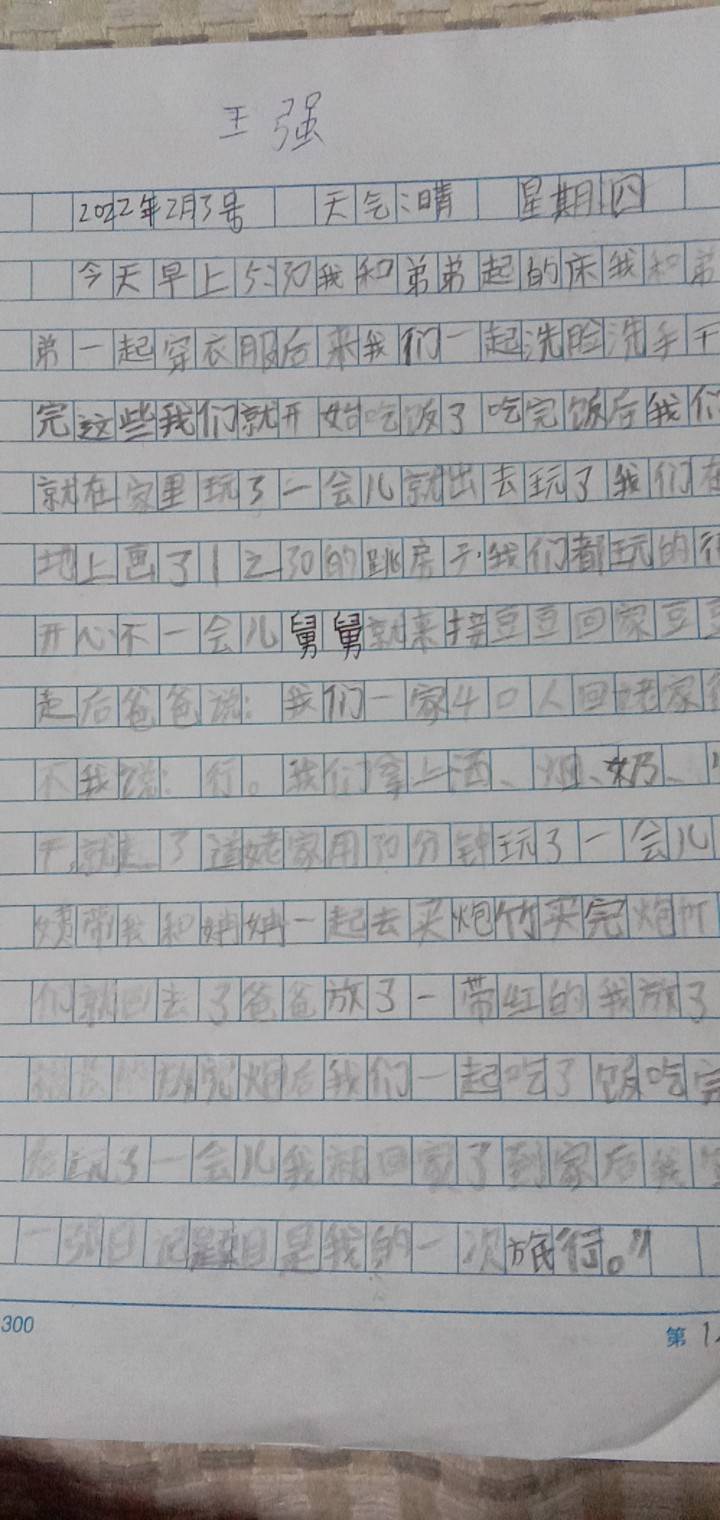 王强
2022年2月3号 天气:晴 星期四
今天早上5:30我和弟弟起的床我和弟
弟一起穿衣服后来我们一起洗脸洗手干
完这些我们就开始吃饭了吃完饭后我们
就在家里玩了一会儿就出去玩了我们在
地上画了1之30的跳房子,我们都玩的很
开心不一会儿舅舅就来接豆豆回家豆豆
走后爸爸说:我们一家4口人回姥家
不我说:行。我们拿上酒、烟、奶、
干,就走了道姥家用30分钟玩了一会儿
带我和娋娋一起去买炮竹买完炮竹
们就回去了爸爸放了一带红的我放了
放完炮后我们一起吃了饭吃完
后玩了一会儿我就回家了到家后我
一编日记题目是我的一次旅行。”
300
第1